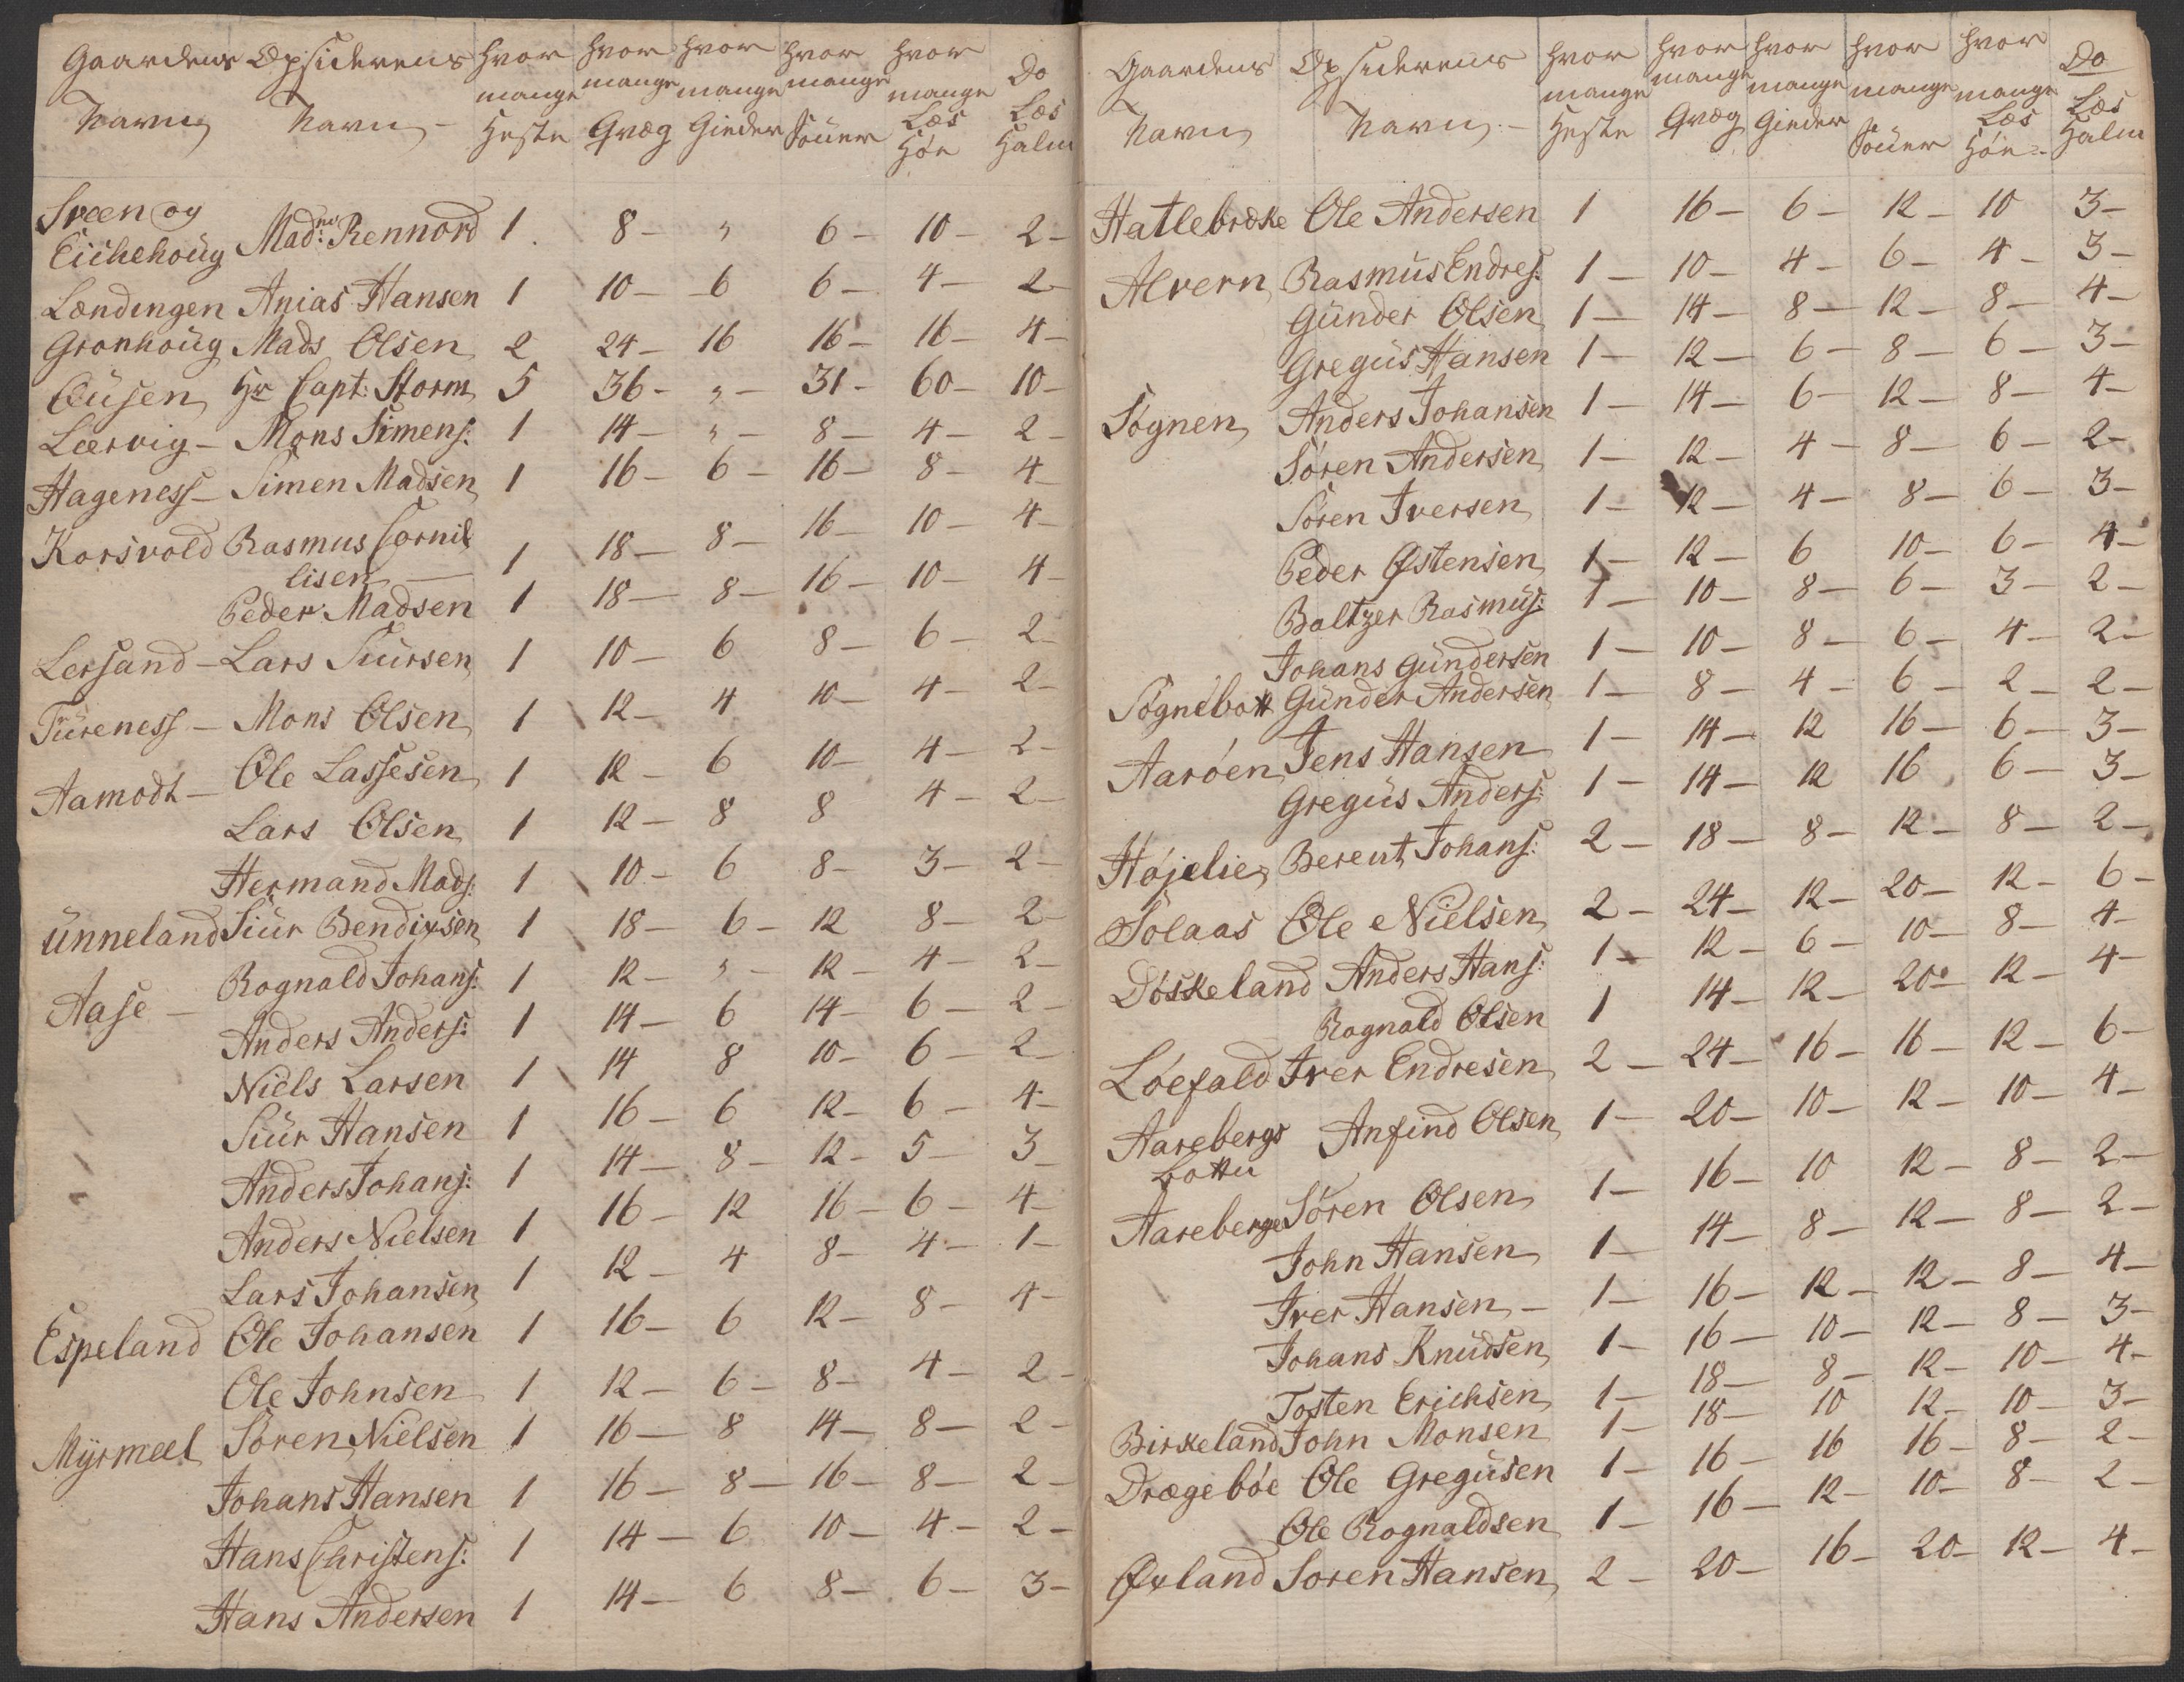 Gaardens Opsiderens hvor mange Heste hvor mange Qvæg hvor mange Gieder hvor mange Souer hvor mange Læs Höe Do Læs Halm
Navn Navn -
Sveen og
Eichehoüg Madme: Rennord 1 8 - " 6 - 10 - 2 -
Lændingen Anias Hansen 1 10 - 6 6 - 4 - 2 -
Gronhoüg Mads Olsen 2 24 - 16 16 - 16 - 4 -
Oüsen Hr Capt: Storm 5 36 - " - 31 - 60 - 10 -
Lærvig - Mons Simens: 1 14 - " - 8 - 4 - 2 -
Hageness - Simen Madsen 1 16 - 6 - 16 - 8 - 4
Korsvold Rasmus Cornil
lisen - 1 18 - 8 - 16 - 10 - 4 -
Peder Madsen 1 18 - 8 - 16 - 10 - 4 -
Lersand - Lars Siürsen 1 10 - 6 8 - 6 - 2 -
Türeness - Mons Olsen 1 12 - 4 10 - 4 - 2 -
Aamodt - Ole Lassesen 1 12 - 6 10 - 4 - 2 -
Lars Olsen 1 12 - 8 8 4 - 2 -
Hermand Mads: 1 10 - 6 8 - 3 - 2 -
Ünneland Siür Bendixsen 1 18 - 6 - 12 8 - 2 -
Aase - Rognald Johans: 1 12 - " - 12 - 4 - 2 -
Anders Anders: 1 14 - 6 14 - 6 - 2 -
Niels Larsen 1 14 8 10 - 6 - 2 -
Siür Hansen 1 16 - 6 12 - 6 - 4 -
Anders Johans: 1 14 - 8 - 12 - 5 - 3 -
Anders Nielsen 1 16 - 12 16 - 6 - 4 -
Lars Johansen 1 12 - 4 8 - 4 - 1 -
Espeland Ole Johansen 1 16 - 6 12 - 8 - 4 -
Ole Johnsen 1 12 - 6 - 8 - 4 - 2 -
Myrmeel Sören Nielsen 1 16 - 8 14 - 8 - 2 -
Johans Hansen 1 16 - 8 - 16 - 8 - 2 -
Hans Christens: 1 14 - 6 10 - 4 - 2 -
Hans Andersen 1 14 - 6 8 - 6 - 3 -
Gaardens Opsiderens hvor mange Heste hvor mange Qvæg hvor mange Gieder hvor mange Souer hvor mange Læs Höe - Do Læs Halm
Navn Navn: -
Hatlebrække Ole Andersen 1 16 - 6 - 12 - 10 3 -
Alvern Rasmüs Endres: 1 - 10 - 4 - 6 - 4 - 3 -
Günder Olsen 1 - 14 - 8 - 12 - 8 - 4 -
Gregüs Hansen 1 - 12 - 6 - 8 - 6 - 3 -
Sögnen Anders Johansen 1 - 14 - 6 - 12 - 8 - 4 -
Sören Andersen 1 - 12 - 4 - 8 - 6 - 2 -
Sören Iversen 1 - 12 - 4 - 8 - 6 - 3 -
Peder Østensen 1 - 12 - 6 10 - 6 - 4 -
Baltzer Rasmüs: 1 - 10 - 8 - 6 - 3 - 2 -
Johans Gündersen 1 - 10 - 8 - 6 - 4 - 2 -
Sögnebott Günder Andersen 1 - 8 - 4 - 6 - 2 - 2 -
Aaröen Jens Hansen 1 - 14 - 12 16 - 6 - 3 -
Gregüs Anders: 1 - 14 - 12 16 6 - 3 -
Höjelie Berent Johans: 2 - 18 - 8 - 12 - 8 - 2 -
Solaas Ole Nielsen 2 - 24 - 12 - 20 - 12 - 6 -
Döskeland Anders Hans: 1 - 12 - 6 - 10 - 8 - 4 -
Rognald Olsen 1 14 - 12 - 20 - 12 - 4 -
Löefald Iver Endresen 2 - 24 - 16 - 16 - 12 - 6 -
Aarebergs Anfind Olsen 1 - 20 - 10 - 12 - 10 - 4 -
Aareberge Sören Olsen 1 - 16 - 10 12 - 8 - 2 -
John Hansen 1 - 14 - 8 - 12 - 8 - 2 -
Iver Hansen - 1 - 16 - 12 - 12 - 8 - 4 -
Johans Knüdsen 1 - 16 - 10 - 12 - 8 - 3 -
Tosten Erichsen 1 - 18 - 8 - 12 - 10 - 4 -
Birkeland John Monsen 1 - 18 - 10 12 - 10 - 3 -
Drægeböe Ole Gregüsen 1 - 16 - 16 16 - 8 - 2 -
Ole Rognaldsen 1 - 16 - 12 - 10 - 8 - 2 -
Øxland Soren Hansen 2 - 20 - 16 - 20 - 12 - 4 -